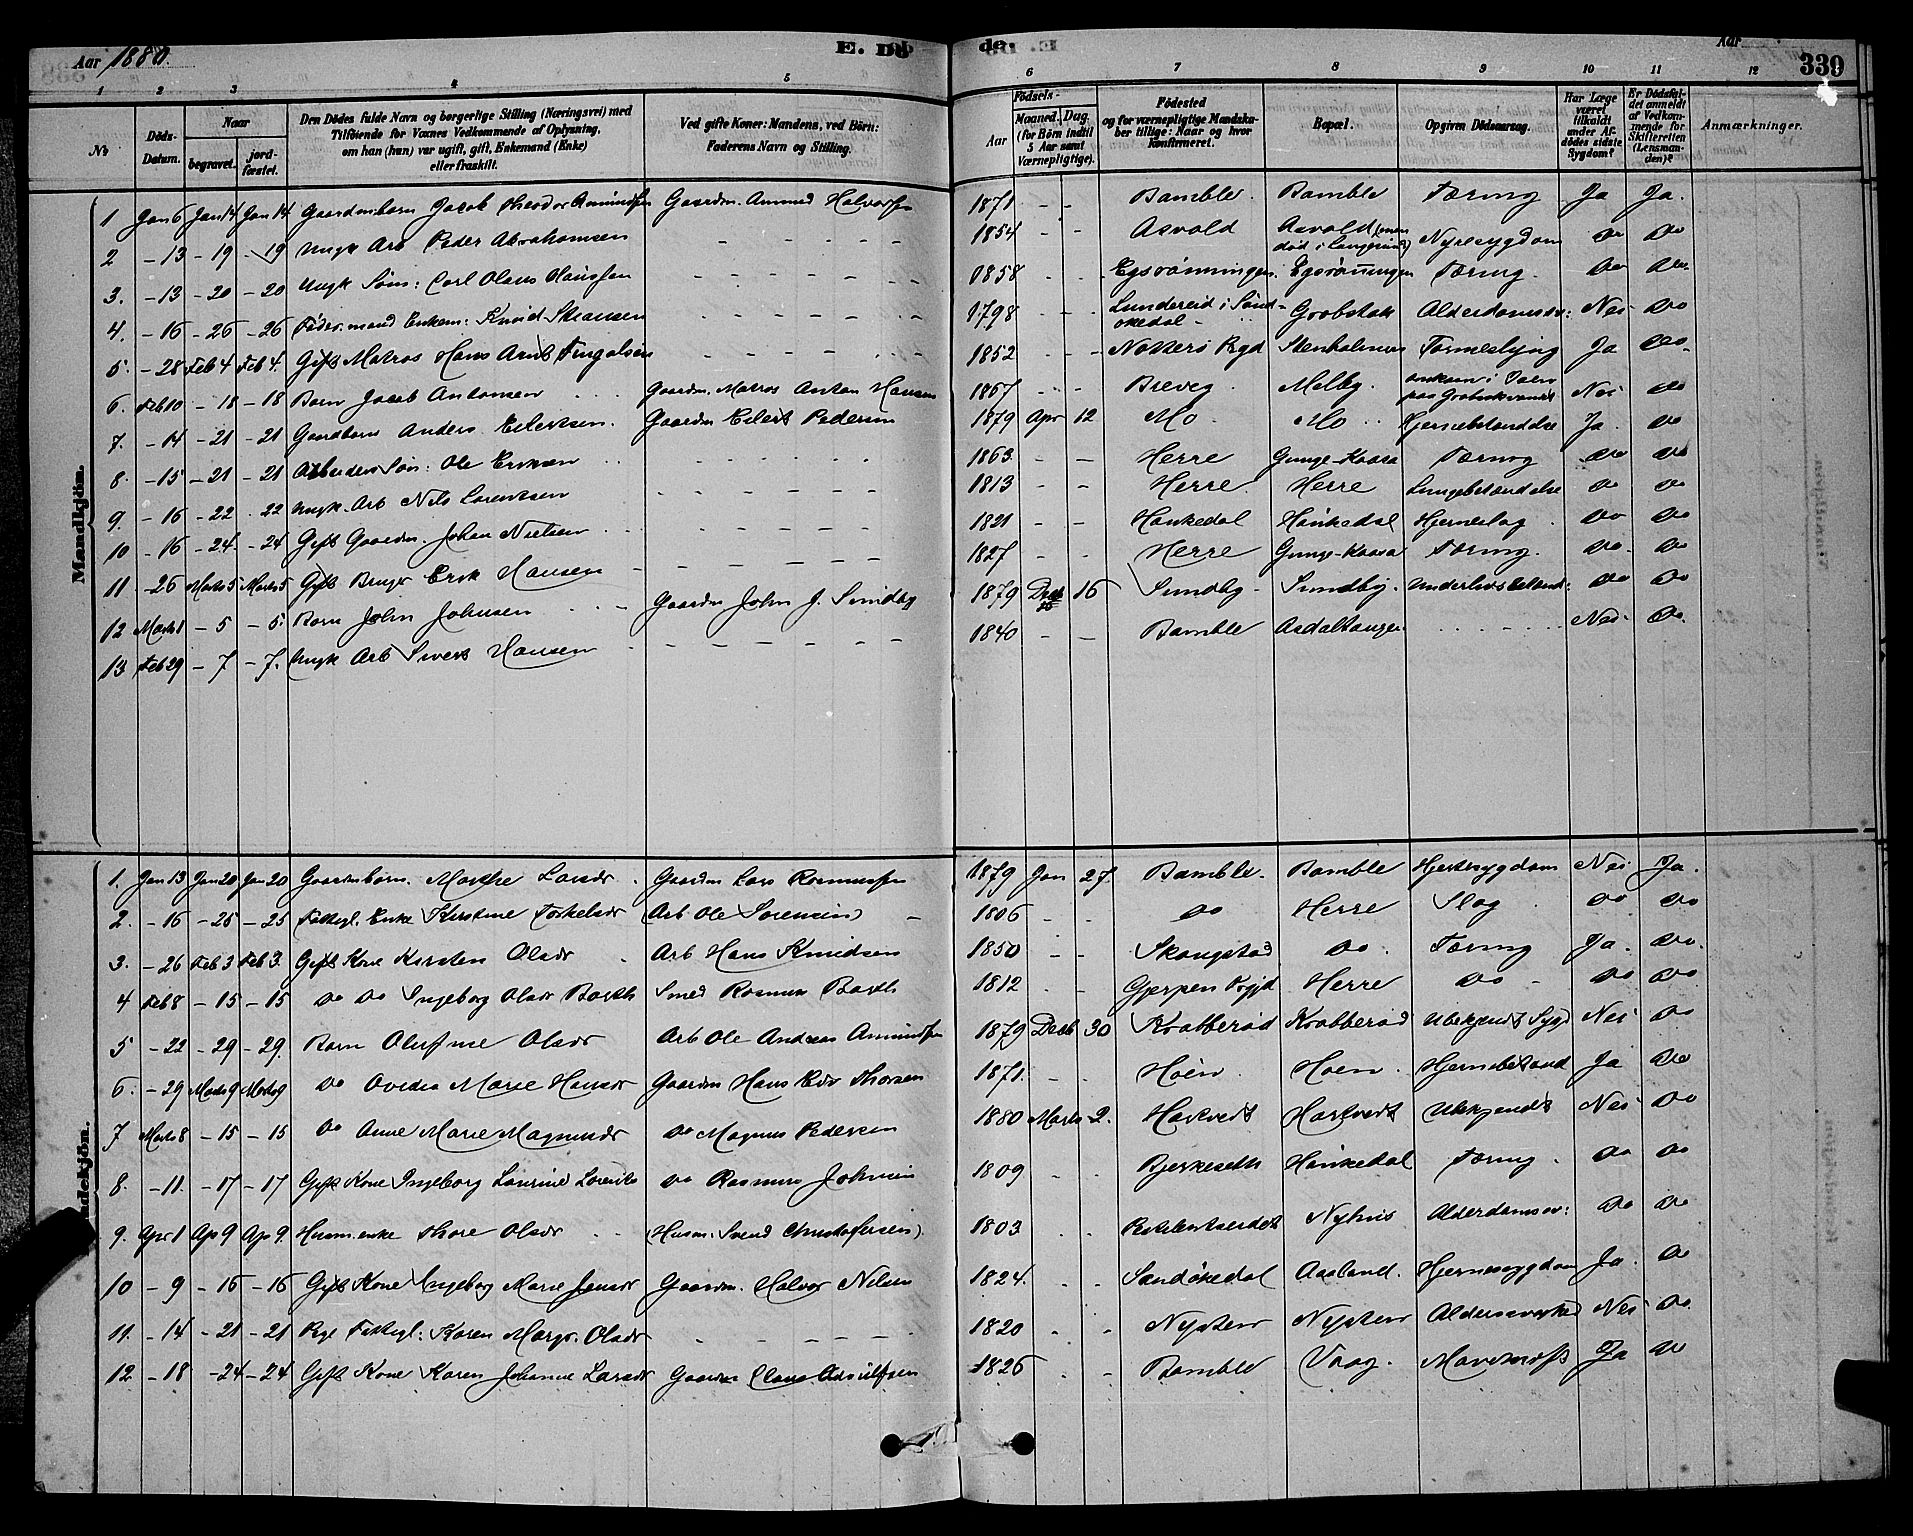 Aar 1880. E. Dö de Aar 339
1 2 3 4 5 6 7 8 9 10 11 12
No
Döds-Datum.
Naar
begravet.
jord-fæstet.
Den Dödes fulde Navn og borgerlige Stilling (Næringsvei) med
Tilföiende for Voxnes Vedkommende af Oplysning,
om han (hun) var ugift, gift, Enkemand (Enke)
eller fraskilt.
Ved gifte Koner: Mandens, ved Börn:
Faderens Navn og Stilling.
Födsels-
Aar
Maaned. Dag.
(for Börn indtil
5 Aar samt
Værnepligtige).
Födested
og for værnepligtige Mandska-
ber tillige: Naar og hvor
konfirmeret.
Bopæl.
Opgiven Dödsaarsag.
Har Læge
været
tilkaldt
under Af-
dödes sidste
Sygdom?
Er Dödsfal-
det anmeldt
af Vedkom-
mende for
Skifteretten
(Lensman-
den)?
Anmærkninger.
Mandkjön.
1 Jan 6 Jan 14 Jan 14 Gaardm.barn Jacob Theodor Amundsen Gaardm. Amund Halvorsen 1871 - - Bamble. Bamble Tæring Ja Ja.
2 - 13 - 19 - 19 Ungk Arb Peder Abrahamsen - - - - 1854 - - Asvold Asvold (men død i Langesund) Nyresygdom Do Do
3. - 13 - 20 - 20 Ungk Søn: Carl Olaus Claussen - - - - 1858 - - Egsrønningen. Egsrønningen Tæring. Do Do.
4. - 16 - 26 - 26 Føder.mand Enkem: Knud - - - - 1798 - - Lundereid i Sandøkedal - Grobstok Alderdomssv: Nei Do
5. - 28 Feb 4 Feb 4. Gift Matros Hans Arnt - - - - 1852 - - Nøtterø Pgd Stenholmen Ja Do.
6. Feb 10 - 18 - 18 Barn Jacob Antonsen Gaardm. Matros Anton Hansen 1867 - - Brevig. Melby. Nei Do
7. - 14 - 21 - 21 Gaardbarn Anders Eilertsen. Gaardm Eilert Pedersen 1879 Apr 12 Mo. Mo. Hjernebetændelse Ja. Do
8. - 15 - 21 - 21 Arbeiders Søn: Ole Eriksen - - - - 1863 - - Herre Gunge-Kaasa Tæring Do Do
9. - 16 - 22 - 22 Ungk. Arb Nils Lorentsen - - - - 1813 - - Herre. Herre Lungebetændelse Do Do
10 - 16 - 24 - 24 Gift Gaardm. Johan Nielsen - - - - 1821 - - Hankedal Hankedal Hjerneslag Do Do
11 - 26 Marts 5 Marts 5 Gift Bruger Erik Hansen - - - - 1827 - - Herre Gunge-Kaasa Tæring. Do. Do
12 Marts 1 - 5 - 5. Barn John Johnsen Gaardm John J. Sundby 1879 Decb 16 Sundby - Sundby. Underlivsbetænd: Do Do
13 Feb 29 - 7 - 7. Ungk Arb Sivert Hansen - - - - 1840 - - Bamble Aasdaltangen - - - - Nei. Do.
Kvindekjön.
1. Jan 13 Jan 20 Jan 20 Gaardm.barn. Marthe Larsdr. Gaardm Lars Rasmussen 1879 Jan 27. Bamble. Bamble Hjertesygdom Nei Ja.
2. - 16 - 25 - 25 Fattigl. Enke Kirstine Torkelsdr (Arb Ole Sorensen) - 1806 - - Do Herre Slag Do Do
3. - 26 Feb 3 Feb 3. Gift Kone Kirsten Olsdr Arb Hans Knudsen 1850 - - Skougstad Do. Tæring Ja. Do.
4 Feb 8 - 15 - 15 Do Do Ingeborg Olsdr Barth Smed Rasmus Barth 1812 - - Gjerpen Pgd Herre Do - Do Do
5 - 22 - 29 - 29. Barn Olufine Olsdr Arb Ole Andreas Amundsen 1879 Decb 30 Krabberød Krabberød Ubekjendt Sygd Nei Do
6. - 29 Marts 9 Marts 9 Do Ovedia Marie Hansdr Gaardm Hans Edv Thorsen 1871. - - Hoen. Hoen. Hjernebetænd Ja Do
7 Marts 8 - 15 - 15 Do Anne Marie Magnusdr Do Magnus Pedersen 1880 Marts 2. Hartvedt Hartvedt Ubekjendt Nei Do
8. - 11. - 17 - 17 Gift Kone Ingeborg Laurine Do Rasmus Johnsen 1809 - - Bjerkeseth Hankedal Tæring. Do Do
9. Apr 1 Ap 9 Ap 9. Husm.enke Thore Olsdr (Husm: Svend Christofersen) 1803 - - Nyhus Alderdomssv: Do Do
10 - 9 - 16 - 16 Gift Kone Ingeborg Marie Jensdr Gaardm. Halvor Nilsen 1824. - - Sandøkedal Aaland. Hjernesygdom Ja. Do
11. - 14 - 21 - 21 Pige Fattigl: Karen Margr. Olsdr - - - - 1820 - - Nysten Nysten Alderssvækk Nei Do
12. - 18 - 24 - 24 Gift Kone Karen Johanne Larsdr Gaardm 1826 - - Bamble Vaag. Ja Do